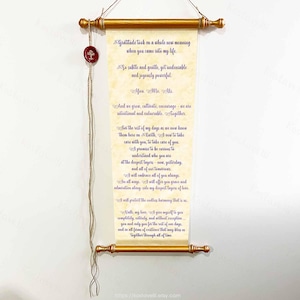 Gratitude took on a whole new meaning
when you came into my life.
So subtle and gentle, yet undeniable
and joyously powerful.
You. Me. We.
And we grow, cultivate, encourage - we are
intentional and vulnerable. Together.
For the rest of my days as we now know
them here on Earth, I vow to take
care with you, to take care of you.
I promise to be curious to
understand who you are
at the deepest layers - now, yesterday,
and all of our tomorrows.
I will embrace all of you always.
In all ways, I will offer you grace and
admiration along with my deepest layers of love.
I will protect the nesting harmony that is us.
my love, I give myself to you
completely, entirely, and without exception,
you and only you for the rest of our days,
and in all forms of existence that may bless us
together through all of time.